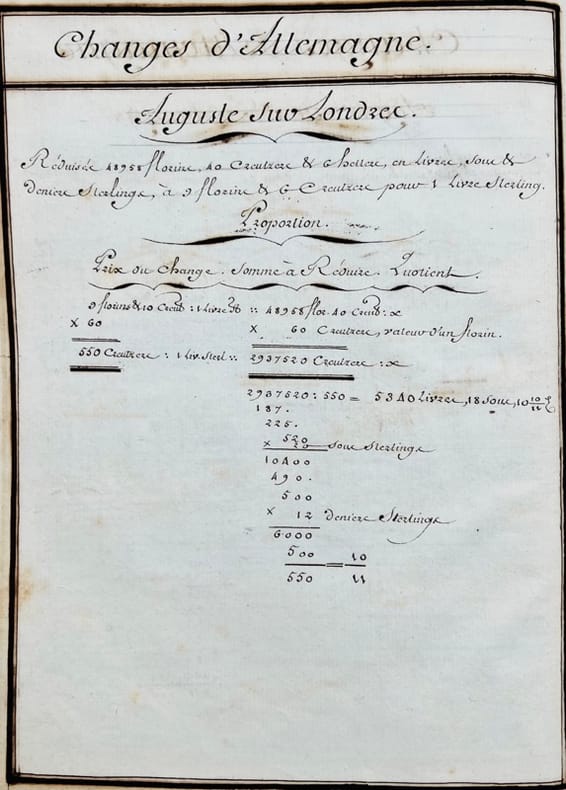 Changes d'Allemagne.
Auguste sur Londres.
Réduisés 48958 florins, 40 Creutzers & 6 hellers, en Livres, sous &
Deniers Sterlings, à 9 florins & 6 Creutzers pour 1 Livre Sterling.
Proportion.
Prix du Change. Somme à Réduire. Quotient.
9 florins & 10 Creutz : 1 Livre St :: 48958 flor. 40 Creutz : x
x 60 x 60 Creutzers, valeur d'un florin.
550 Creutzers : 1 Liv. Sterl :: 2937520 Creutzers : x
2937520 : 550 = 5340 Livres, 18 sous, 10 10/11 d
187.
225.
520
x 20 sous Sterlings
10400
490.
500
x 12 deniers Sterlings
6000
500 = 10
550 11